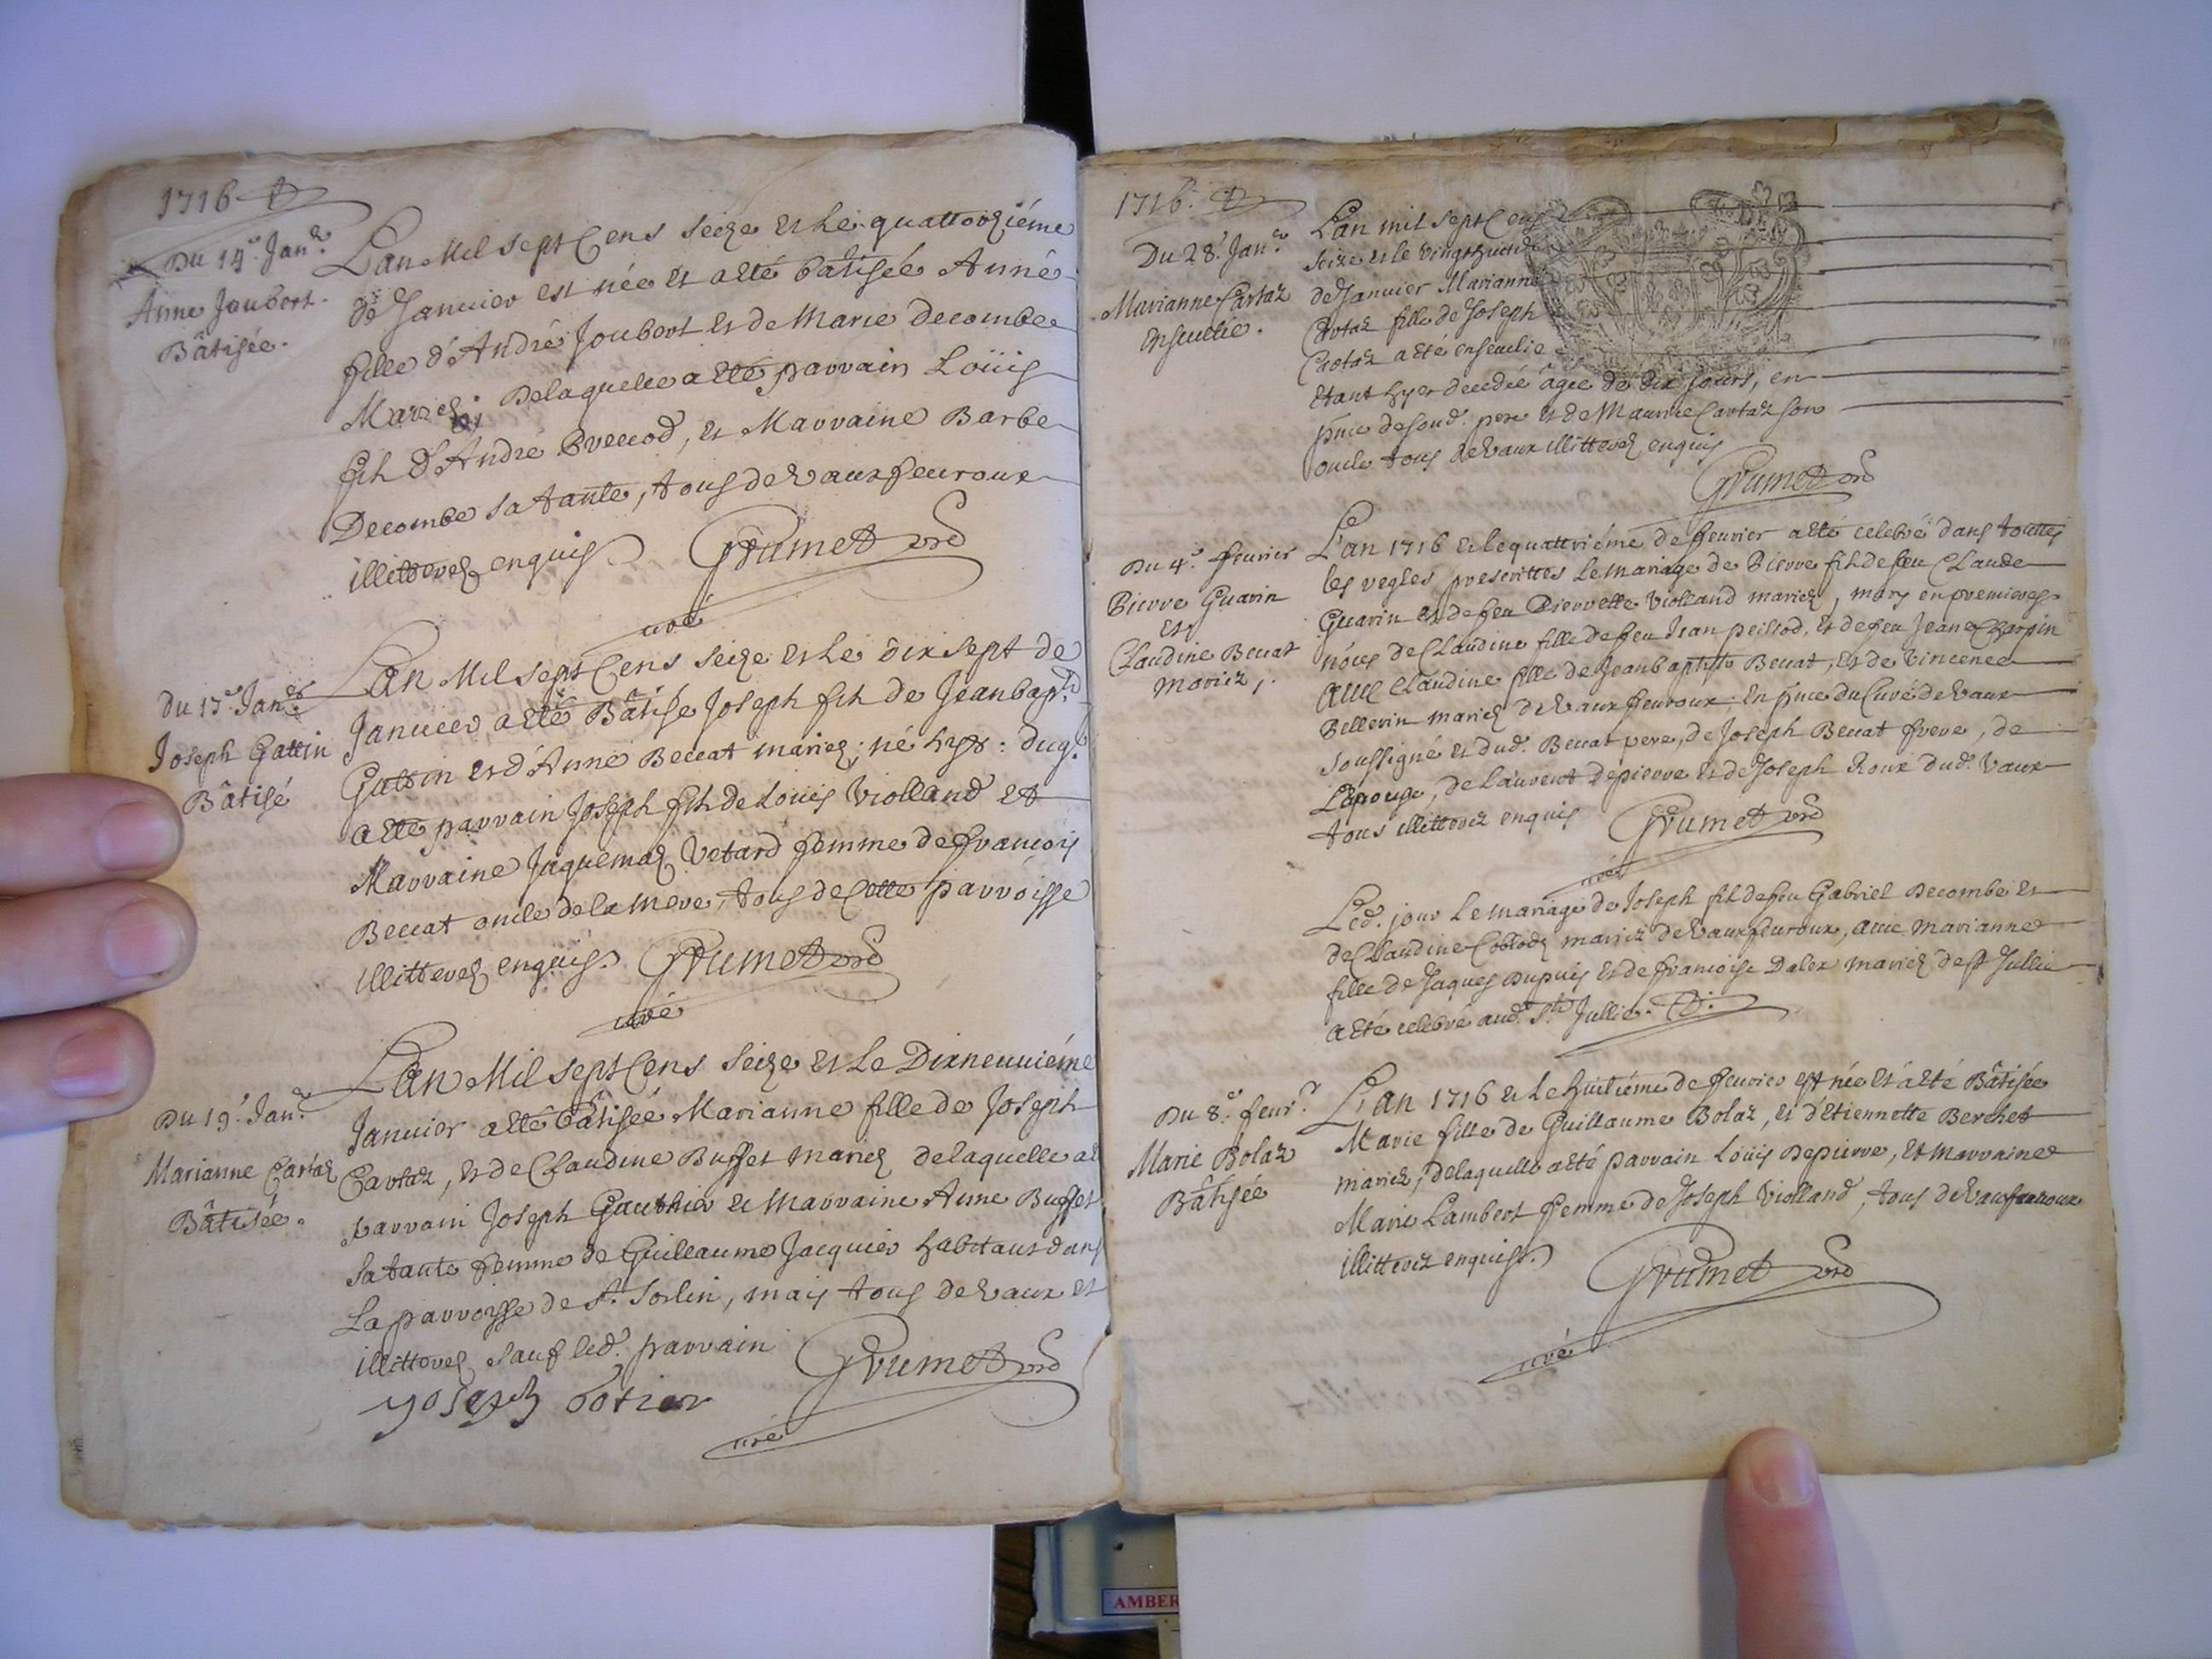 1716
Du 14e. Janr.
Anne Joubert
Bâtisée.
L'an Mil sept Cens seize et le quattorziéme
de Januier est née et a eté bâtisée Anne
fille d'André Joubert et de Marie Decombe
Mariez; de laquelle a eté parrain Loüis
fils d'André Evecod, et Marraine Barbe
Decombe sa tante, tous de Vaux feuroux
illitterez enquis. Grumet
curé
Du 17e. Janr.
Joseph Gattin
Bâtisé
L'an Mil sept Cens seize et le dix sept de
Januier a eté Bâtisé Joseph fils de Jean bapt.
Gattin et d'Anne Beccat mariez; né hyer: duq.
a eté parrain Joseph fils de Louis Violland et
Marraine Jaquemaz Vetard femme de françois
Beccat oncle de la mere, tous de Cette parroisse
illitterez enquis. Grumet
curé
Du 19e. Janr.
Marianne Cartaz
Bâtisée.
L'an Mil sept Cens seize et Le Dixneuuiéme
Januier a eté bâtisée Marianne fille de Joseph
Cartaz, et de Claudine Buffet mariez de laquelle a
parrain Joseph Gauthier et Marraine Anne Buffet
sa tante femme de Guillaume Jacquier habitans dans
La parroisse de St. Sorlin, mais tous de Vaux et
illitterez sauf led. parrain Grumet
yoseph Gotier
curé
1716.
Du 28e. Janr.
Marianne Cartaz
enseuelie.
L'an mil sept Cens
seize et le vingt huit
de Januier Marianne
Cartaz fille de Joseph
Cartaz a eté enseuelie
etant hyer decedée âgée de dix jours, en
pnce de sond. pere et de Maurice Cartaz son
oncle tous de Vaux illitterez enquis
Grumet
Du 4e. feurier
Pierre Guarin
et
Claudine Beccat
mariez.
L'an 1716 et le quattriéme de feurier a eté celebré dans touttes
les regles prescrittes le mariage de Pierre fils de feu Claude
Guarin et de feu Pierrette Violland mariez, mary en premieres
nôces de Claudine fille de feu Jean peillod, et de feu Jeane Charpin
auec Claudine fille de Jean baptiste Beccat, et de Vincence
Pellerin mariez de Vaux feuroux; En pnce du Curé de Vaux
soussigné et dud. Beccat pere, de Joseph Beccat frere, de
de Laurent depierre et de Joseph Roux dud. Vaux
tous illitterez enquis Grumet
curé
Led. jour le mariage de Joseph fils de feu Gabriel Decombe et
de Claudine mariez de Vaux feuroux, auec Marianne
fille de Jaques Dupuis et de françoise Dalex mariez de St Jullie
a eté celebré aud. St. Jullie.
Du 8e. feurr.
Marie Bolaz
Bâtisée
L'an 1716 et le huitiéme de feurier est née et a eté Bâtisée
Marie fille de Guillaume Bolaz, et d'Etiennette Berchet
mariez, de laquelle a eté parrain Loüis Depierre, et marraine
Marie Lambert femme de Joseph Violland, tous de Vauxfeuroux
illitterez enquis. Grumet
curé
AMBER